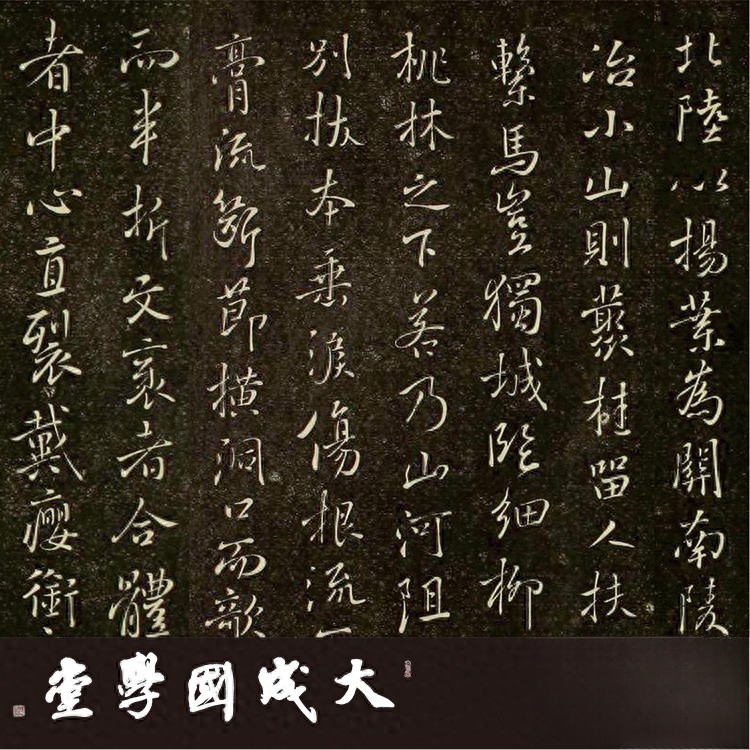 北陸以揚葉為關南陵
冶小山則叢桂留人扶
繫馬豈獨城臨細柳
桃林之下若乃山河阻
別拔本垂淚傷根流
膏流斷節橫洞口而欹
而半折文衺者合體
者中心直裂戴癭銜
大成國學堂